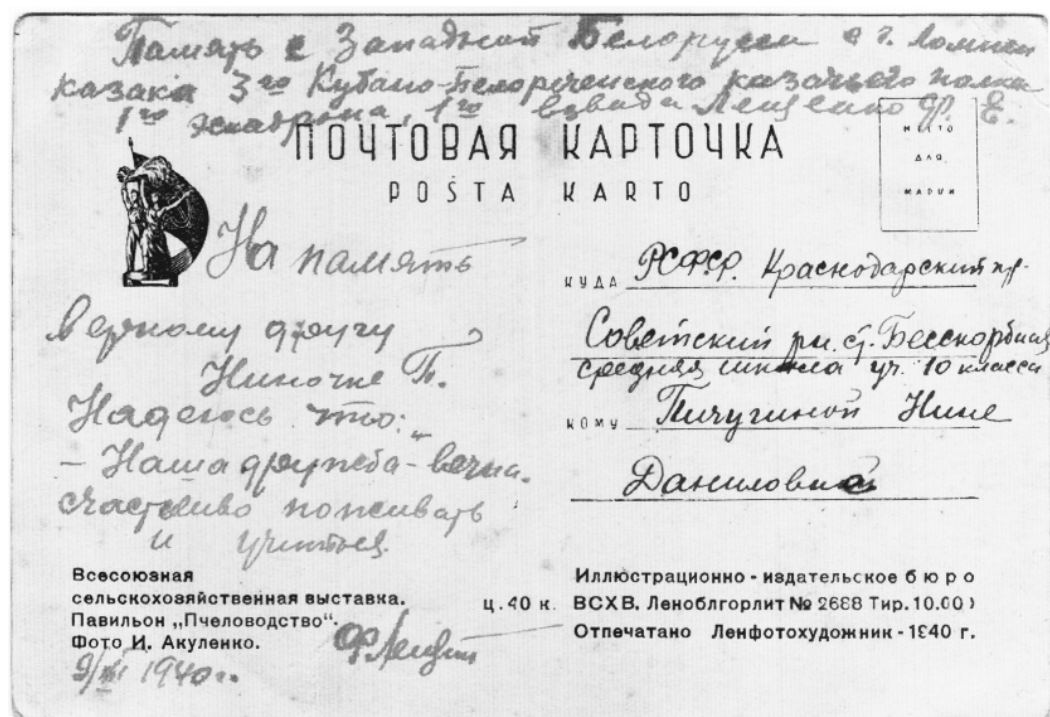 Память с Западной Белорусси с г. Ломжи
казака 3го Кубано-Белореченского казачьего полка
1го эскадрона, 1го взвода Лещенко Ф. Е.
ПОЧТОВАЯ КАРТОЧКА
POŠTA KARTO
МЕСТО
ДЛЯ
МАРКИ
На память
верному другу
Ниночке П.
Надеюсь что:
– Наша дружба – вечна.
счастливо поживать
и учиться.
КУДА РСФСР. Краснодарский кр.
Советский рн. ст. Бесскорбная
средняя школа уч. 10 класса
КОМУ Пичугиной Нине
Даниловной
Всесоюзная
сельскохозяйственная выставка.
Павильон „Пчеловодство“.
Фото И. Акуленко.
ц. 40 к.
Иллюстрационно-издательское бюро
ВСХВ. Леноблгорлит № 2688 Тир. 10.00
Отпечатано Ленфотохудожник-1940 г.
1940 г.